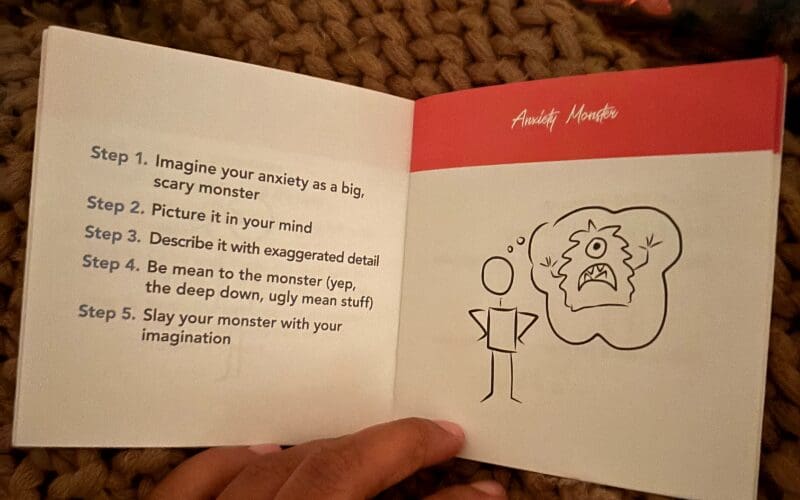 Step 1. Imagine your anxiety as a big,
scary monster
Step 2. Picture it in your mind
Step 3. Describe it with exaggerated detail
Step 4. Be mean to the monster (yep,
the deep down, ugly mean stuff)
Step 5. Slay your monster with your
imagination
Anxiety Monster